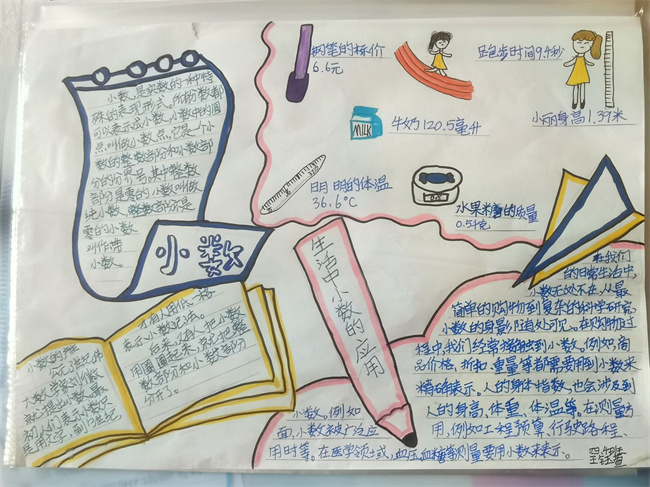 小数,是实数的一种特
殊的表现形式。所有分数都
可以表示成小数,小数中的圆
点叫做小数点,它是一个小
数的整数部分和小数部
分的分界号。其中整数
部分是零的小数叫做
纯小数,整数部分是
零的小数
叫作带
小数。
小数
钢笔的标价
6.6元
跑步时间9.4秒
小丽身高1.39米
MILK
牛奶120.5毫升
明明的体温
36.6℃
水果糖的质量
0.54克
生活中小数的应用
在我们
的日常生活中,
小数无处不在,从最
简单的购物到复杂的科学研究,
小数的身影随处可见。在购物过
程中,我们经常接触到小数。例如,商
品价格,折扣,重量等都需要用到小数来
精确表示。人的身体指数,也会涉及到
人的身高、体重、体温等。在测量方
面,小数被广泛应用,例如工程预算,行驶路程、
用时等。在医学领土或,血压,血糖等测量要用小数来表示。
小数的产
大数学家刘徽
就提出小数,最
初,人们表示小数只
是用文字,到了13世纪
才有人用低一格
表示小数记法。
后来,又有人把小数
用圆圈起来,就把整
数部分和小数部分
分开了。